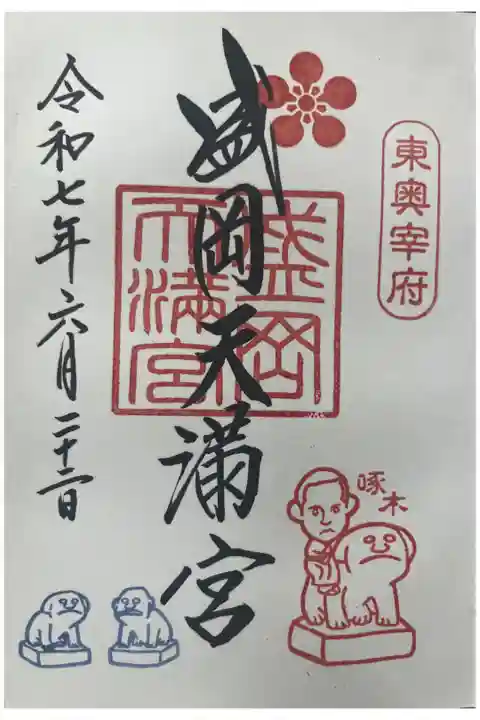 東奥宰府
盛岡天満宮
盛岡
天満宮
令和七年六月二十二日
啄木